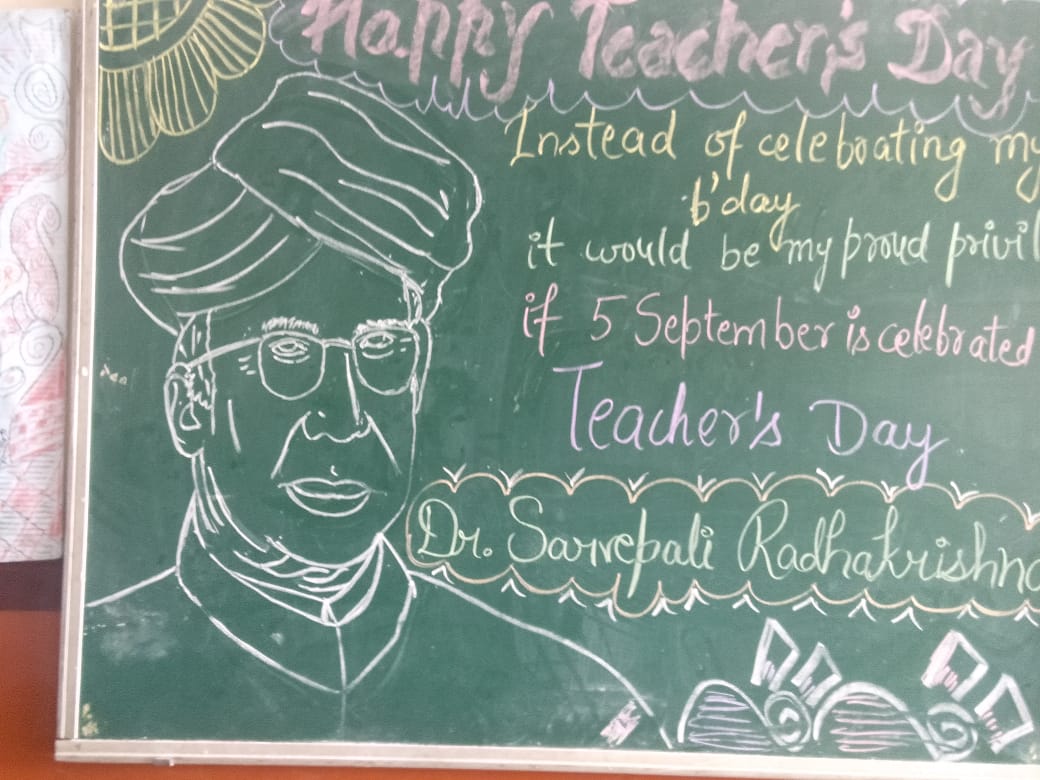 Happy Teacher's Day
Instead of celebrating my
b'day
it would be my proud privil
if 5 September is celebrated
Teacher's Day
Dr. Sarvepali Radhakrishna